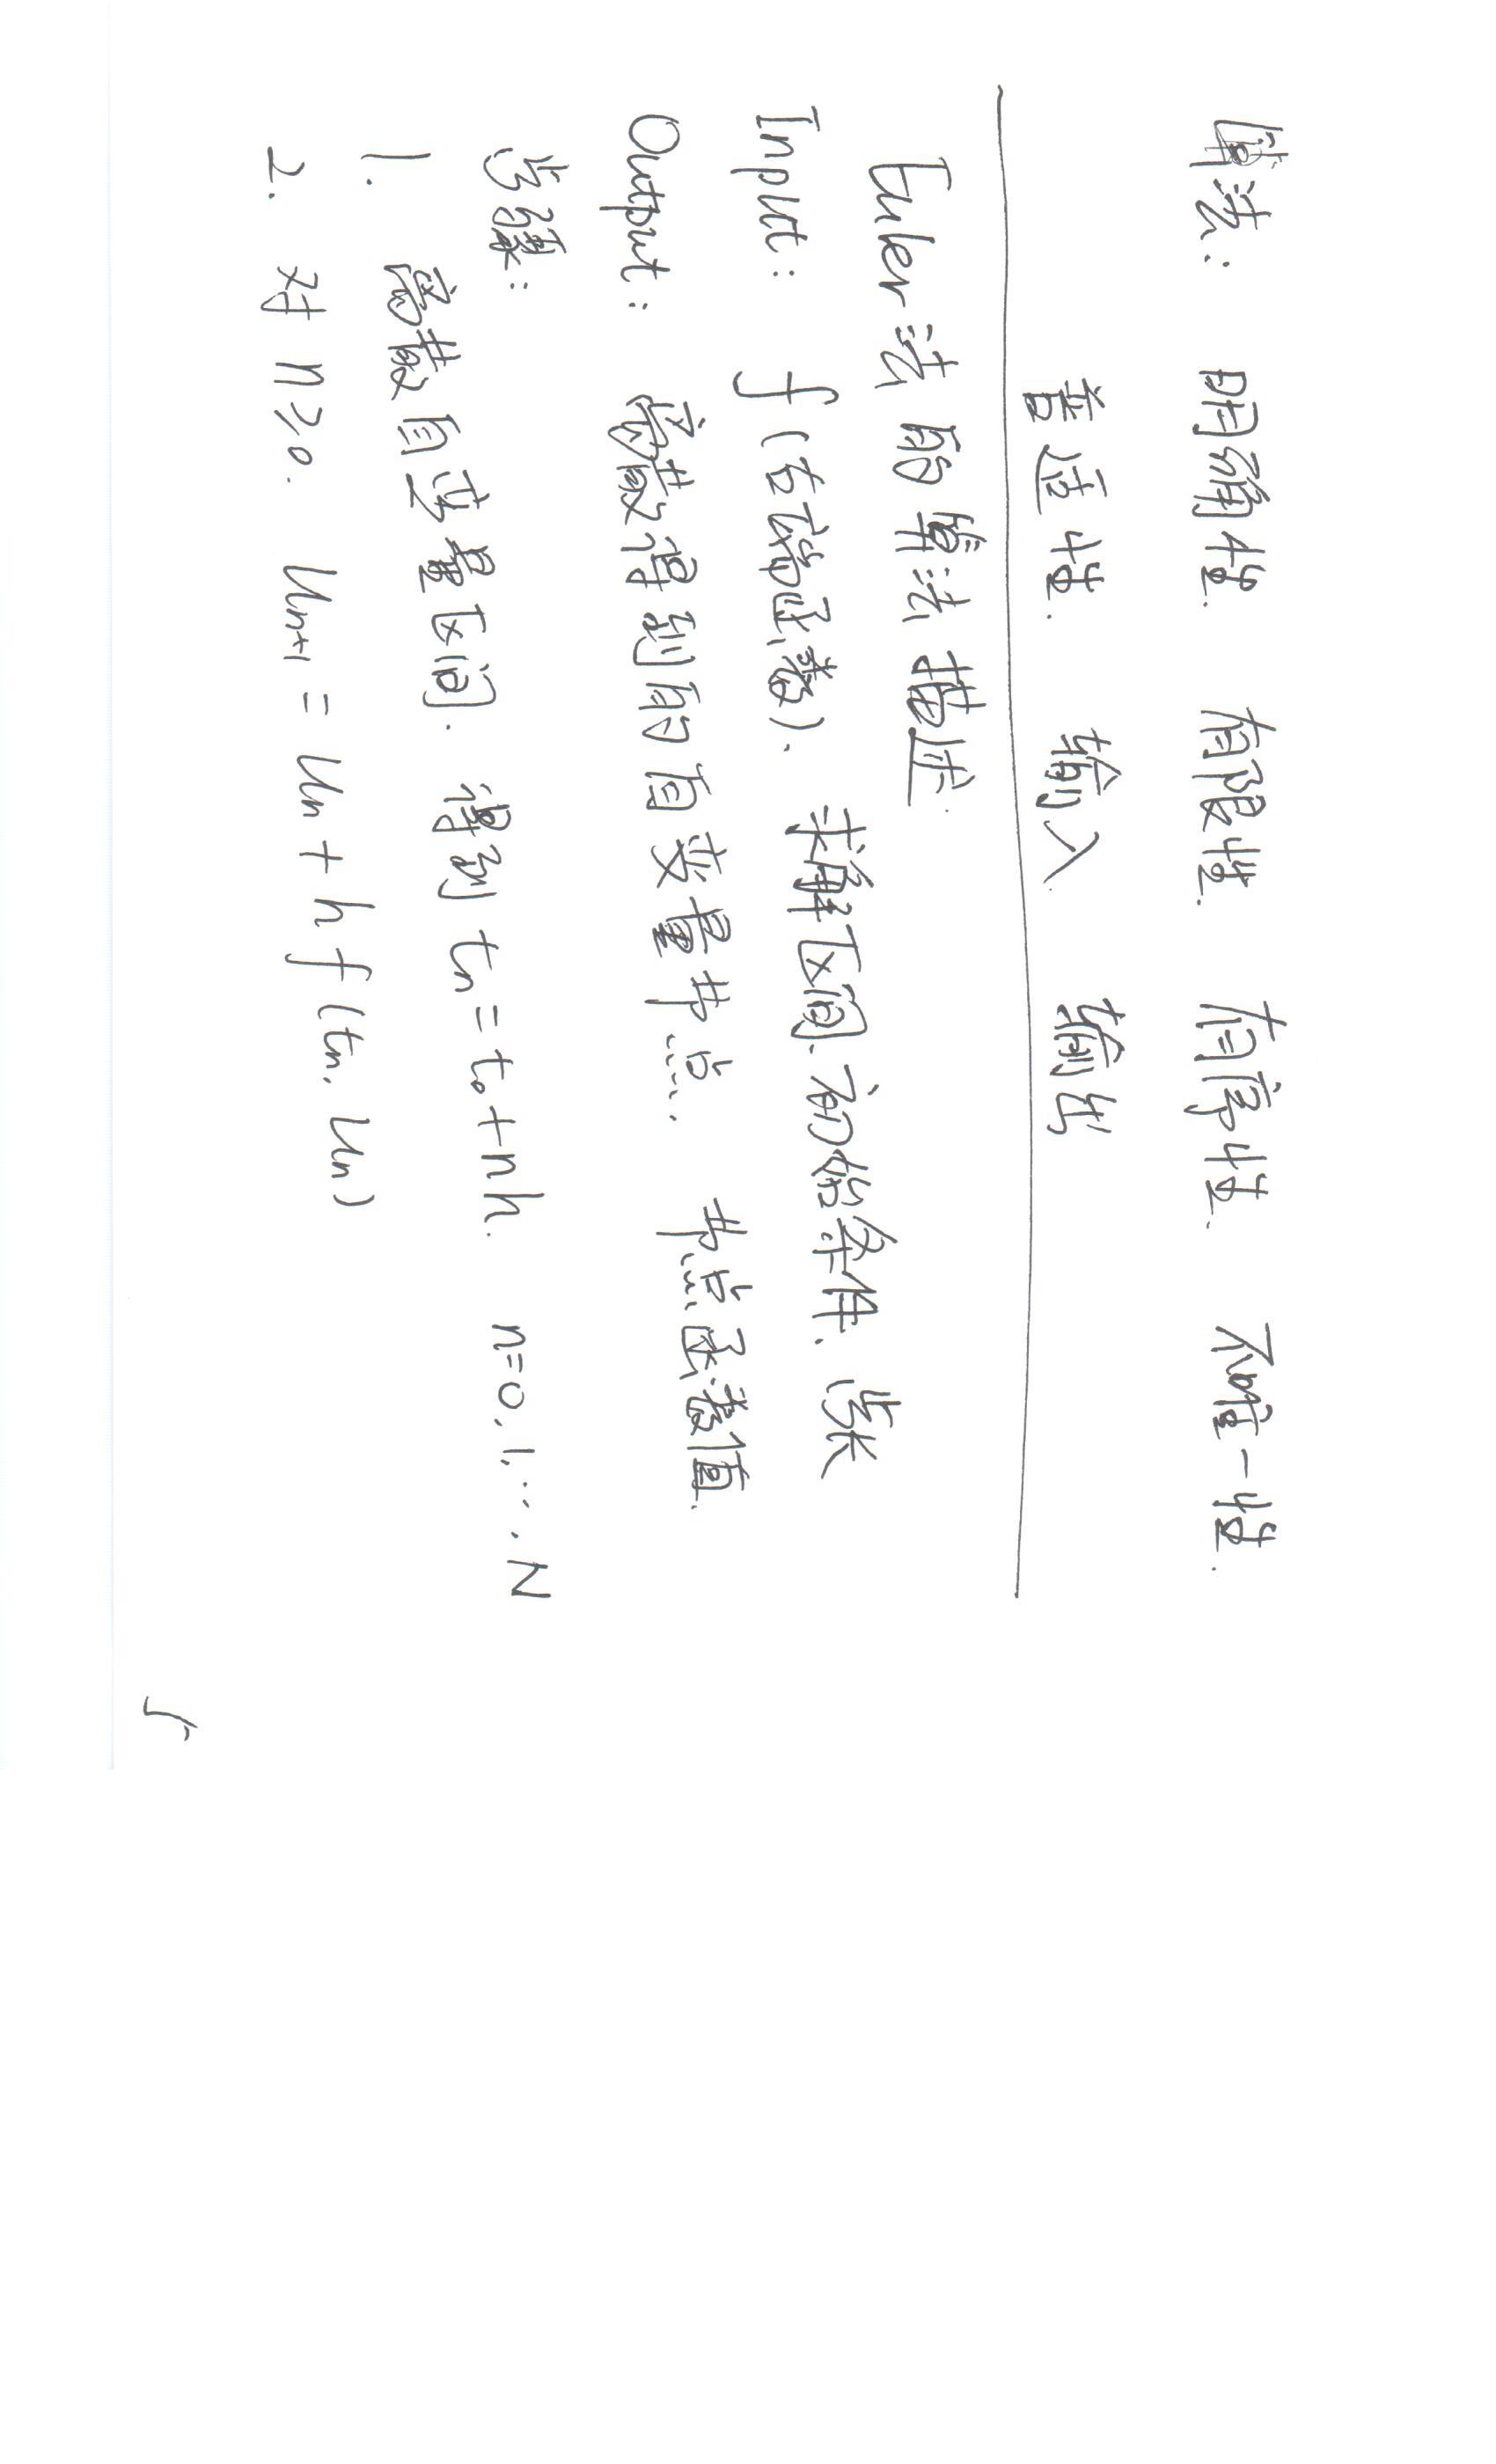 算法: 明确性. 有限性. 有序性. 不唯一性.
普适性. 输入. 输出
Euler法的算法描述:
Input: f(右端函数). 求解区间. 初始条件. 步长
Output: 离散得到的自变量节点. 节点函数值.
步骤:
1. 离散自变量区间. 得到 tₙ = t₀ + nh. n=0, 1, ⋯, N
2. 对 n≥0. uₙ₊₁ = uₙ + h f(tₙ, uₙ)
5